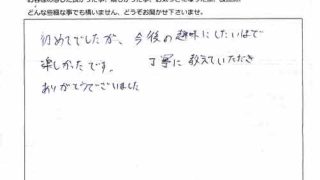 どんな些細な事でも構いません、どうぞお聞かせ下さいませ。
初めてでしたが、今後の趣味にしたいほど
楽しかったです。 丁寧に教えていただき
ありがとうございました